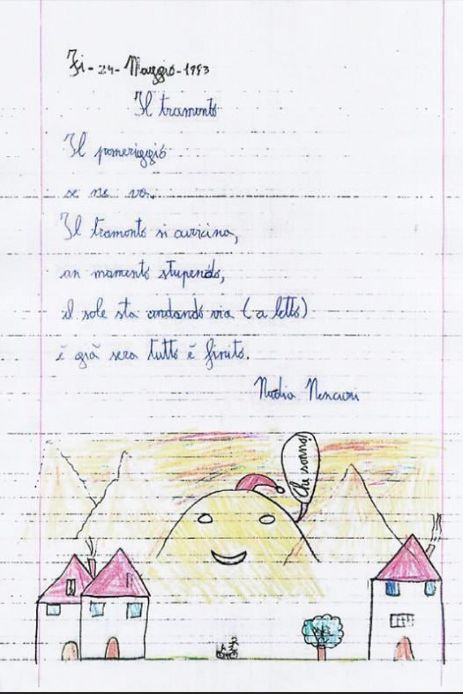 Fi-24-Maggio-1983
Il tramonto
Il pomeriggio
se ne va.
Il tramonto si avvicina,
un momento stupendo,
il sole sta andando via (a letto)
è già sera tutto è finito.
Nadia
Che sonno!